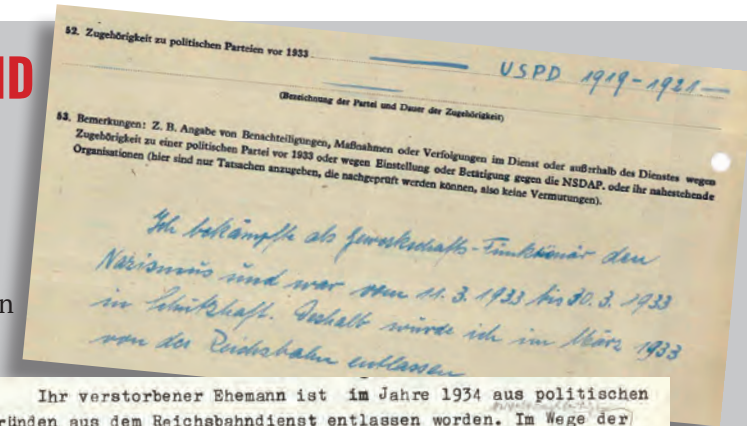 ND
52. Zugehörigkeit zu politischen Parteien vor 1933
USPD 1919-1921.—
(Bezeichnung der Partei und Dauer der Zugehörigkeit)
53. Bemerkungen: Z. B. Angabe von Benachteiligungen, Maßnahmen oder Verfolgungen im Dienst oder außerhalb des Dienstes wegen
Zugehörigkeit zu einer politischen Partei vor 1933 oder wegen Einstellung oder Betätigung gegen die NSDAP. oder ihr nahestehende
Organisationen (hier sind nur Tatsachen anzugeben, die nachgeprüft werden können, also keine Vermutungen).
Ich bekämpfte als Gewerkschafts-Funktionär den
Nazismus und war vom 11. 3. 1933 bis 30. 3. 1933
in Schutzhaft. Deshalb wurde ich im März 1933
von der Reichsbahn entlassen
n
Ihr verstorbener Ehemann ist im Jahre 1934 aus politischen
ründen aus dem Reichsbahndienst entlassen worden. Im Wege der